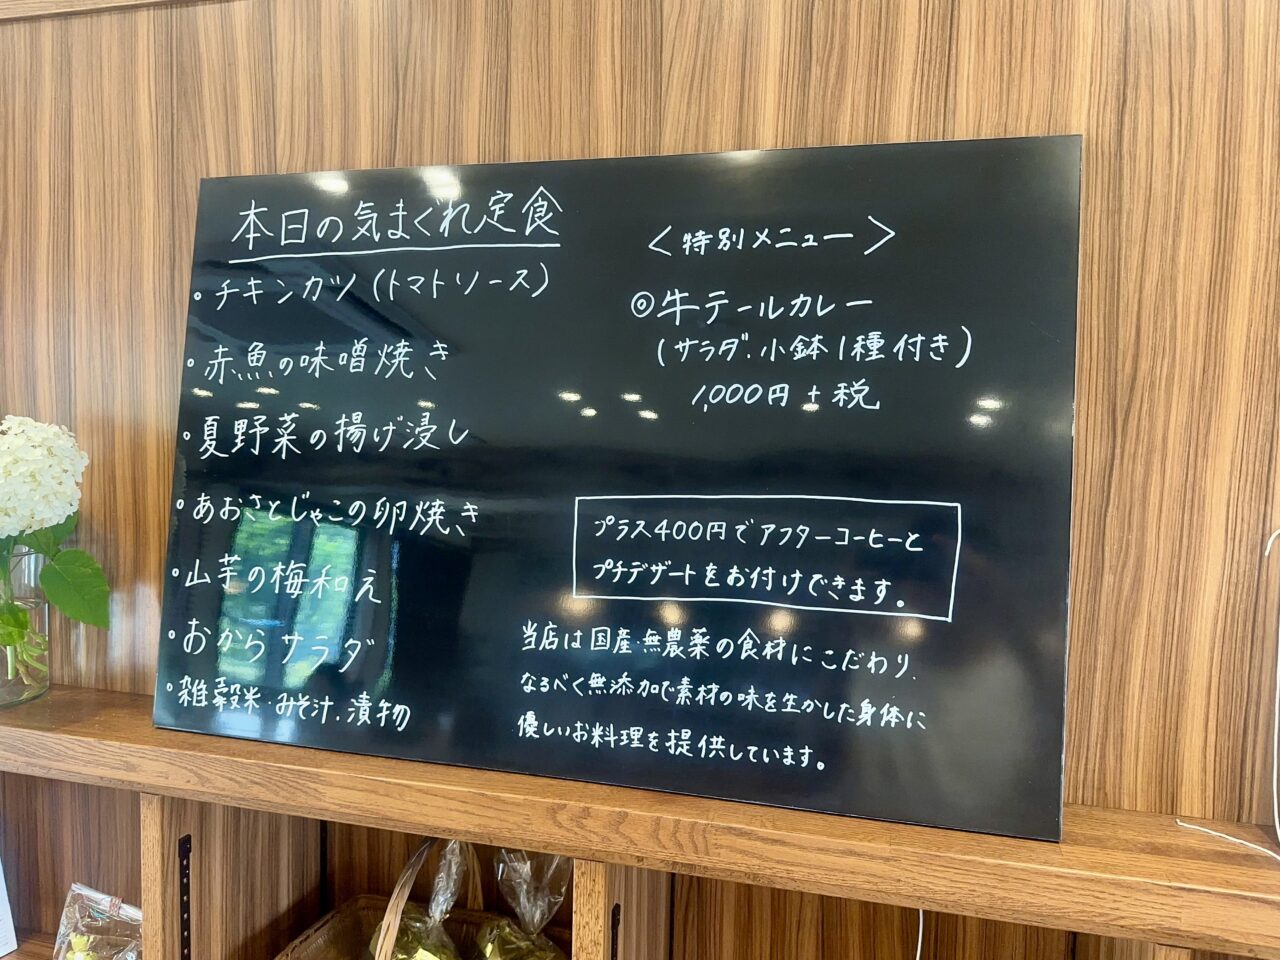 本日の気まぐれ定食
・チキンカツ(トマトソース)
・赤魚の味噌焼き
・夏野菜の揚げ浸し
・あおさとじゃこの卵焼き
・山芋の梅和え
・おからサラダ
・雑穀米・みそ汁・漬物
<特別メニュー>
◎牛テールカレー
(サラダ・小鉢1種付き)
1,000円+税
プラス400円でアフターコーヒーと
プチデザートをお付けできます。
当店は国産・無農薬の食材にこだわり、
なるべく無添加で素材の味を生かした身体に
優しいお料理を提供しています。